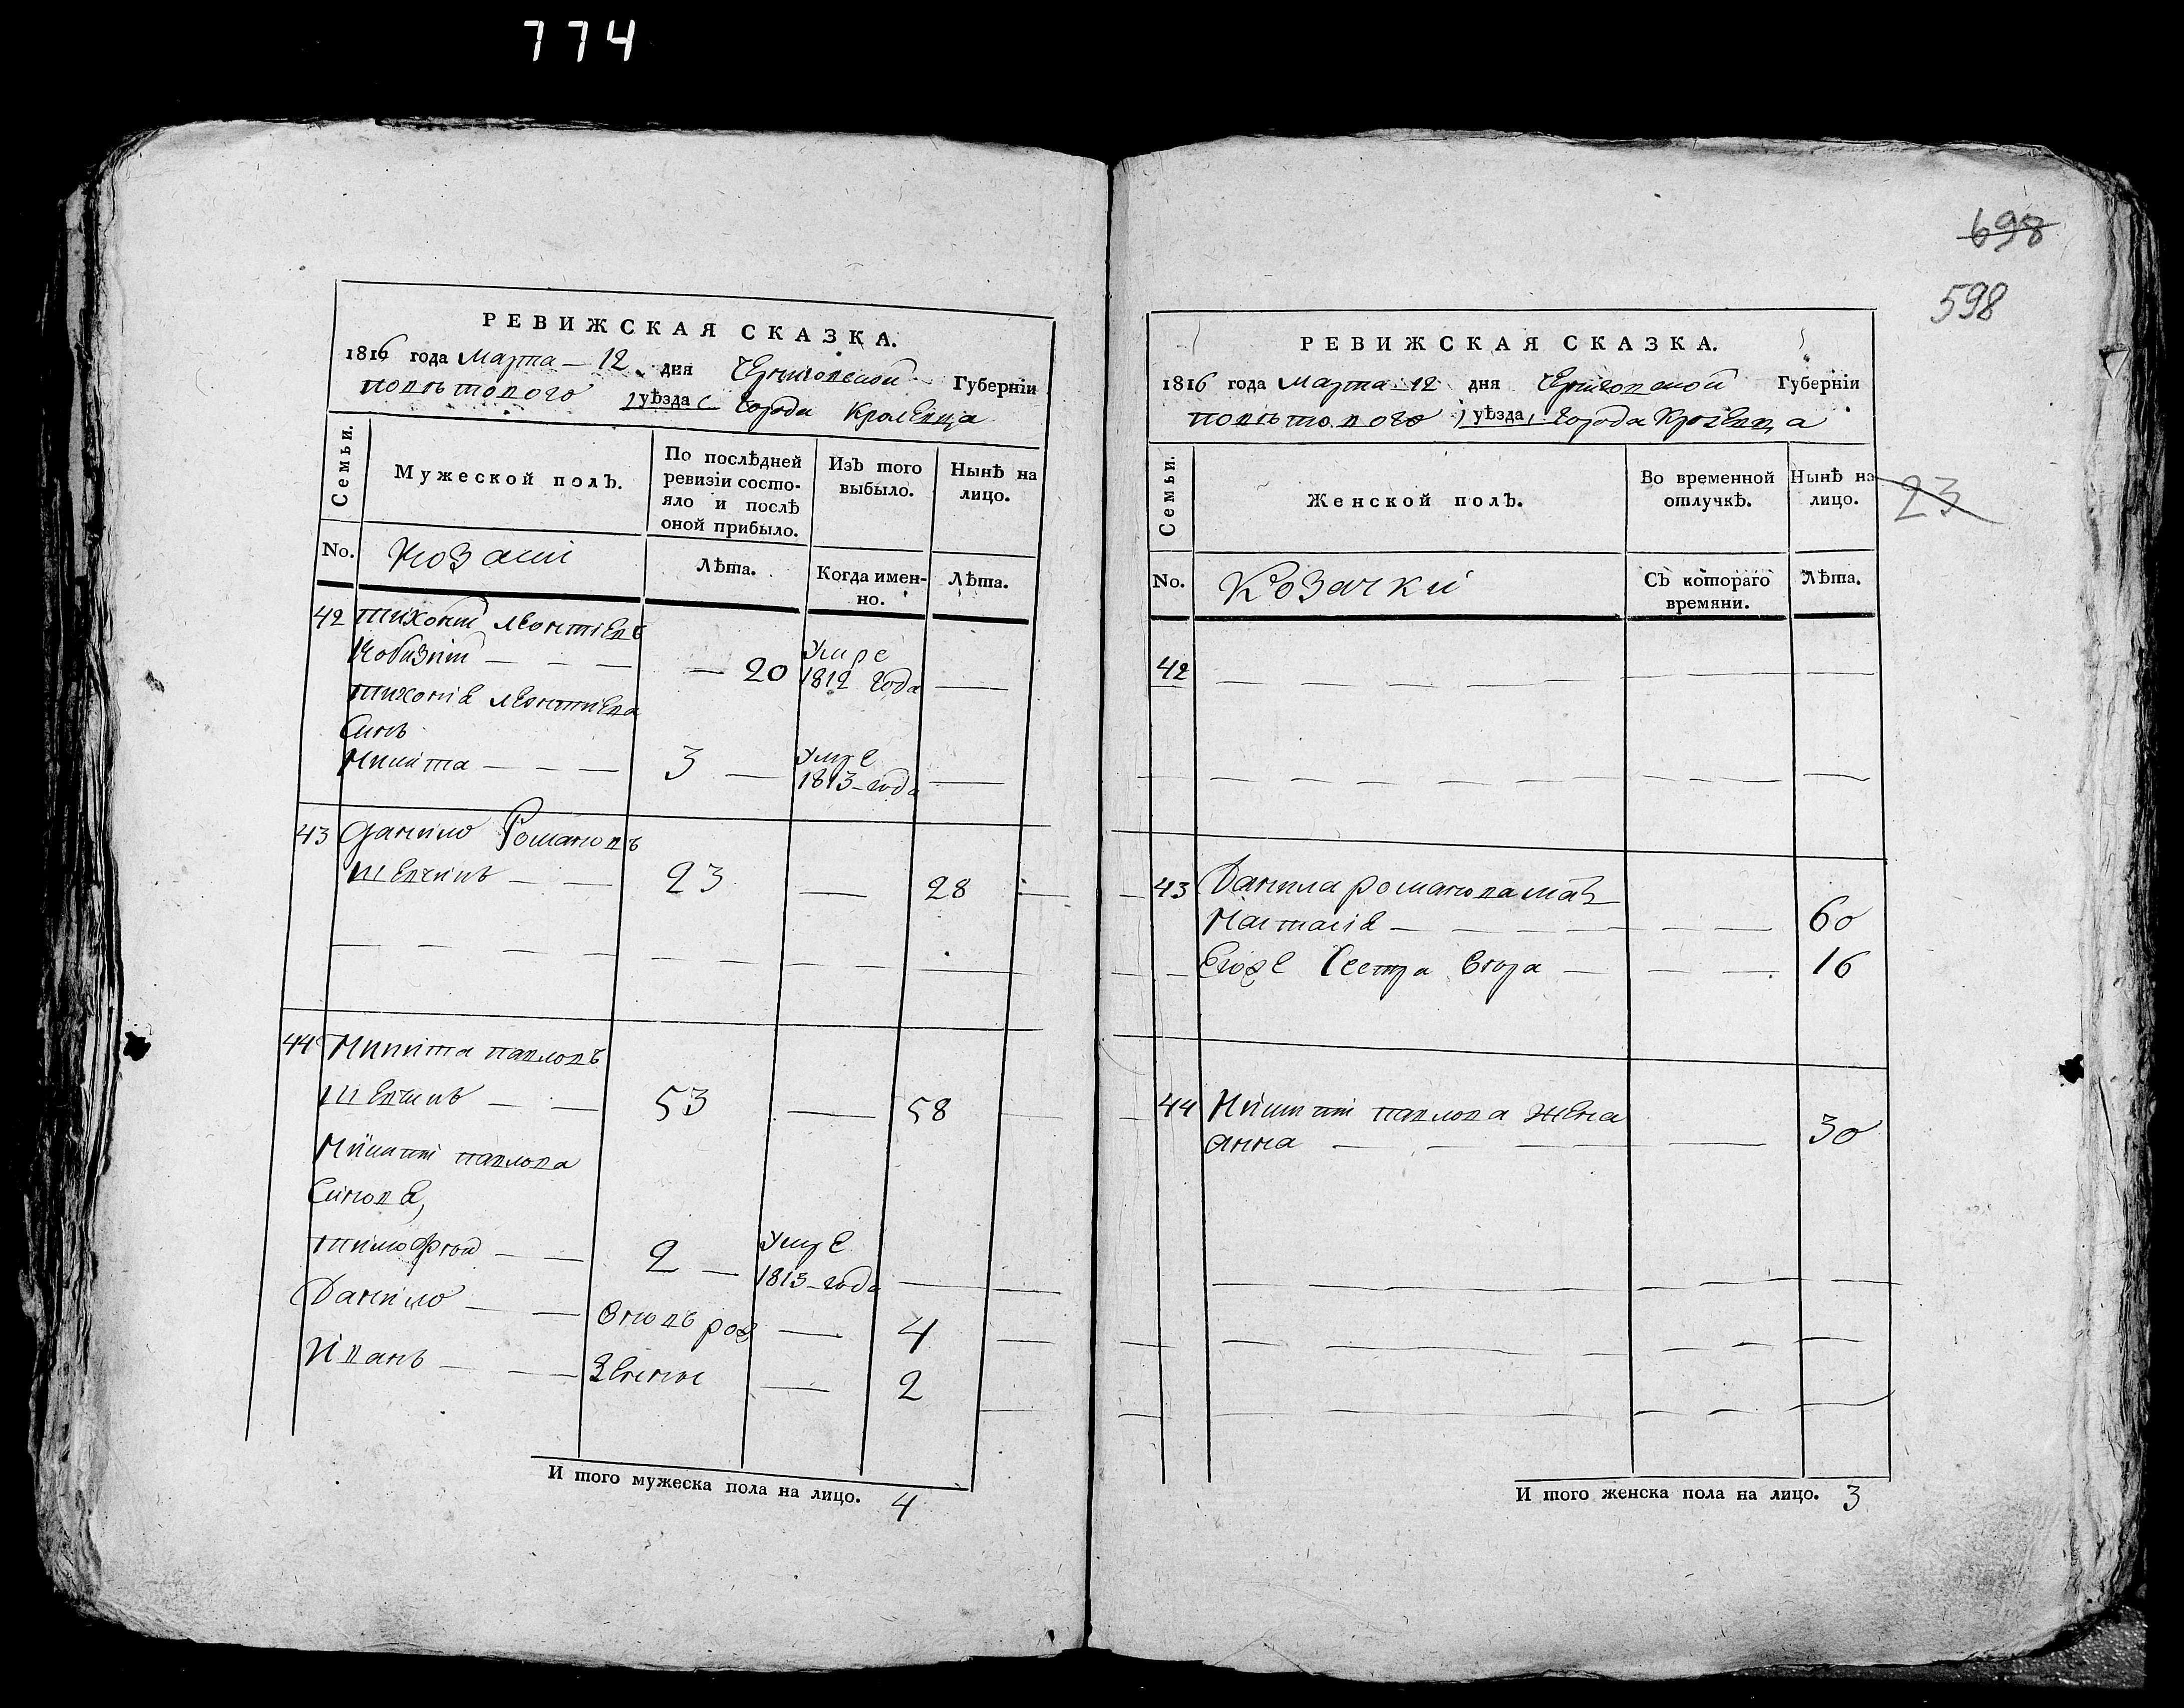 774
РЕВИЖСКАЯ СКАЗКА.
1816 года Марта 12 дня Черниговской Губерніи
повѣтового уѣзда города Кролевца
Семьи.
Мужеской полъ.
По послѣдней ревизіи состо-
яло и послѣ
оной прибыло.
Изъ того
выбыло.
Нынѣ на
лицо.
No.
Козаки
Лѣта.
Когда имен-
но.
Лѣта.
42 Тихонъ Леонтіевъ
20 Умре
1812 года
Тихона Леонтіева
Синъ
Никита 3 Умре
1813 года
43 Данило Романовъ
Шевчикъ 23 28
44 Никита Павловъ
Шевчикъ 53 58
Никити Павлова
Синове,
Тимофѣй 2 Умре
1813 года
Данило вновъ рож 4
Иванъ 2
И того мужеска пола на лицо. 4
698
598
РЕВИЖСКАЯ СКАЗКА.
1816 года Марта 12 дня Черниговской Губерніи
повѣтового уѣзда города Кролевца
23
Семьи.
Женской полъ.
Во временной
отлучкѣ.
Нынѣ на
лицо.
No.
Козачки
Съ котораго
времяни.
Лѣта.
42
43 Данила Романова мать
60
Его же Сестра 16
44 Никити Павлова жена
Анна 30
И того женска пола на лицо. 3